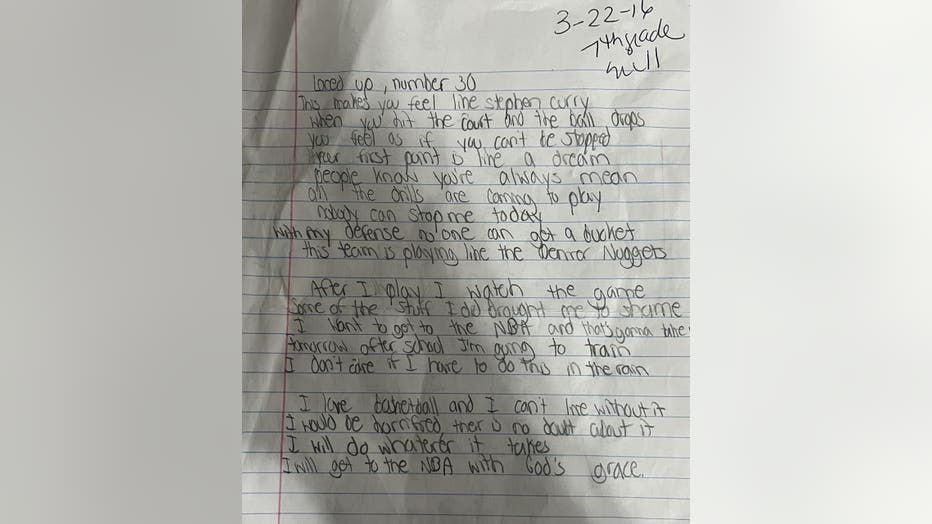 3-22-16
7th grade
Laced up, number 30
This makes you feel like stephen curry
when you hit the court and the ball drops
you feel as if you can't be stopped
your first point is like a dream
people know you're always mean
all the drills are coming to play
nobody can stop me today
with my defense no one can get a bucket
this team is playing like the Denver Nuggets
After I play I watch the game
Some of the stuff I did brought me to shame
I want to get to the NBA and that's gonna take
tomorrow after school I'm going to train
I don't care if I have to do this in the rain
I love basketball and I can't live without it
I would be horrified ther is no doubt about it
I will do whatever it takes
I will get to the NBA with God's grace.